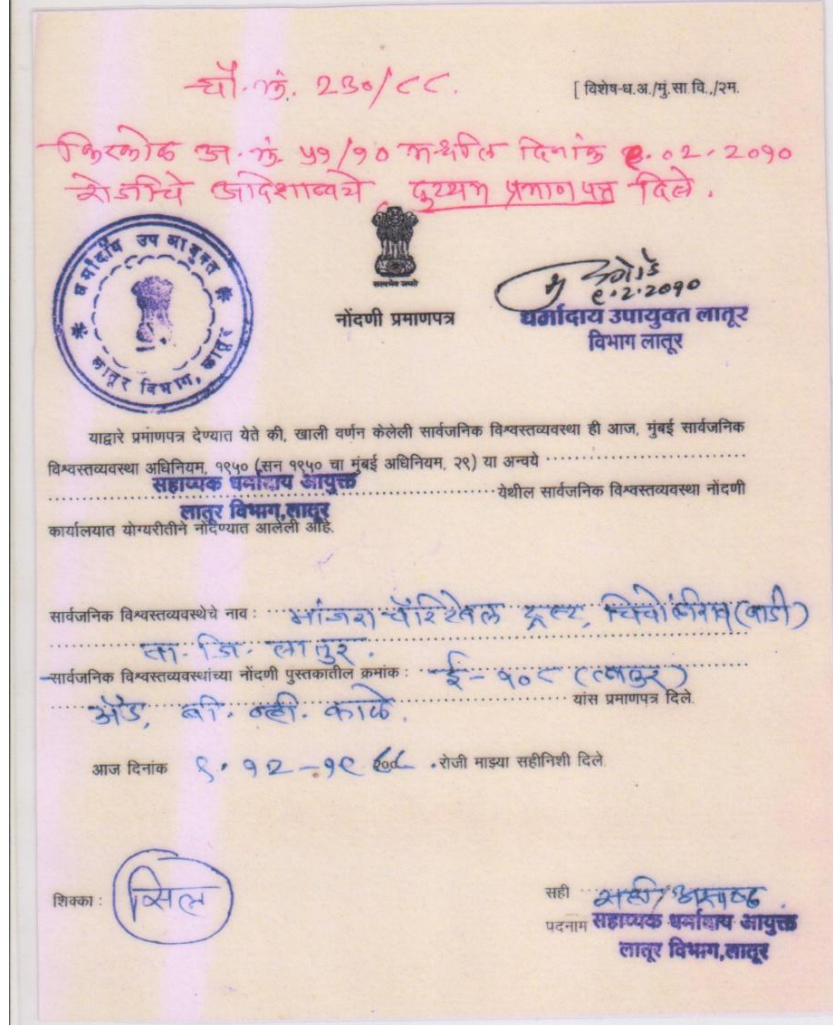 चौ. नं. 230/८८.
[ विशेष-ध.अ./मुं.सा.वि.,/२म.
किरकोळ अ. नं. ५१/१० मधील दिनांक ९.०२.२०१०
रोजीचे आदेशान्वये, दुय्यम प्रमाणपत्र दिले.
धर्मादाय उप आयुक्त
लातूर विभाग, लातूर
सत्यमेव जयते
९.2.२०१०
नोंदणी प्रमाणपत्र
धर्मादाय उपायुक्त लातूर
विभाग लातूर
याद्वारे प्रमाणपत्र देण्यात येते की, खाली वर्णन केलेली सार्वजनिक विश्वस्तव्यवस्था ही आज, मुंबई सार्वजनिक
विश्वस्तव्यवस्था अधिनियम, १९५० (सन १९५० चा मुंबई अधिनियम, २९) या अन्वये
सहाय्यक धर्मादाय आयुक्त
येथील सार्वजनिक विश्वस्तव्यवस्था नोंदणी
लातूर विभाग,लातूर
कार्यालयात योग्यरीतीने नोंदण्यात आलेली आहे.
सार्वजनिक विश्वस्तव्यवस्थेचे नाव : मांजरा चॅरिटेबल ट्रस्ट, (वाडी)
ता. जि. लातूर.
सार्वजनिक विश्वस्तव्यवस्थांच्या नोंदणी पुस्तकातील क्रमांक : ई-१०८ (लातूर)
यांस प्रमाणपत्र दिले.
ॲड, बी. व्ही. काळे.
आज दिनांक ९.१२-१९८८ .रोजी माझ्या सहीनिशी दिले
शिक्का : सिल
सही सही/अस्पष्ट
पदनाम सहाय्यक धर्मादाय आयुक्त
लातूर विभाग,लातूर